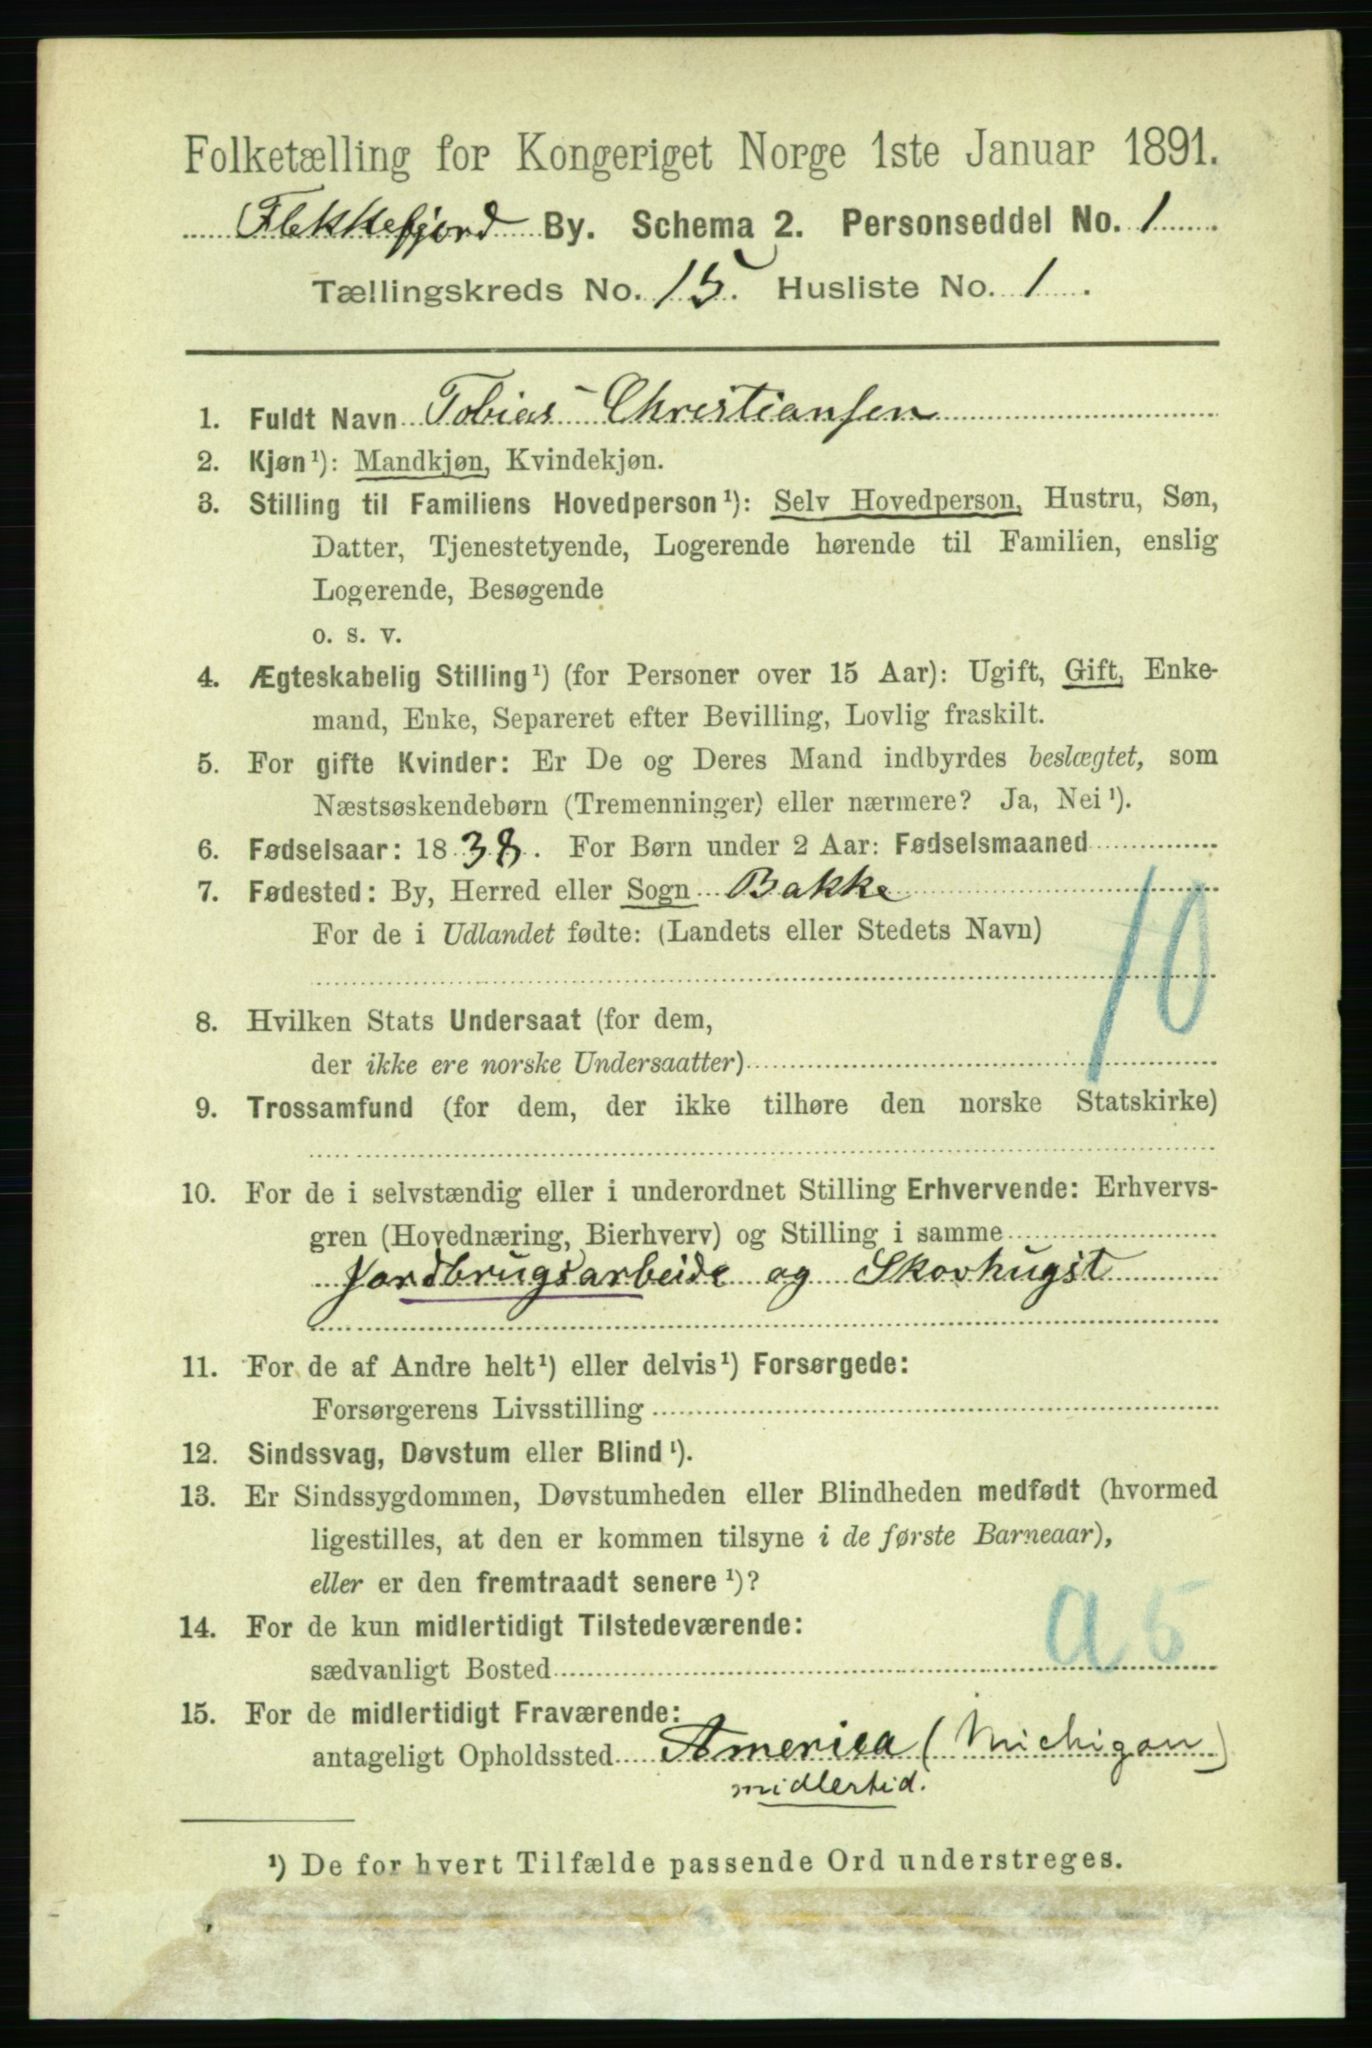 Folketælling for Kongeriget Norge 1ste Januar 1891.
Flekkefjord By. Schema 2. Personseddel No. 1.
Tællingskreds No. 15. Husliste No. 1.
1. Fuldt Navn Tobias Christiansen
2. Kjøn¹): Mandkjøn, Kvindekjøn.
3. Stilling til Familiens Hovedperson¹): Selv Hovedperson, Hustru, Søn,
Datter, Tjenestetyende, Logerende hørende til Familien, enslig
Logerende, Besøgende
o. s. v.
4. Ægteskabelig Stilling¹) (for Personer over 15 Aar): Ugift, Gift, Enke-
mand, Enke, Separeret efter Bevilling, Lovlig fraskilt.
5. For gifte Kvinder: Er De og Deres Mand indbyrdes beslægtet, som
Næstsøskendebørn (Tremenninger) eller nærmere? Ja, Nei¹).
6. Fødselsaar: 1838. For Børn under 2 Aar: Fødselsmaaned
7. Fødested: By, Herred eller Sogn Bakke
For de i Udlandet fødte: (Landets eller Stedets Navn)
10
8. Hvilken Stats Undersaat (for dem,
der ikke ere norske Undersaatter)
9. Trossamfund (for dem, der ikke tilhøre den norske Statskirke)
10. For de i selvstændig eller i underordnet Stilling Erhvervende: Erhvervs-
gren (Hovednæring, Bierhverv) og Stilling i samme
Jordbrugsarbeide og Skovhugst
11. For de af Andre helt¹) eller delvis¹) Forsørgede:
Forsørgerens Livsstilling
12. Sindssvag, Døvstum eller Blind¹).
13. Er Sindssygdommen, Døvstumheden eller Blindheden medfødt (hvormed
ligestilles, at den er kommen tilsyne i de første Barneaar),
eller er den fremtraadt senere¹)?
14. For de kun midlertidigt Tilstedeværende:
sædvanligt Bosted
a 5
15. For de midlertidigt Fraværende:
antageligt Opholdssted America (Michigan)
midlertid.
¹) De for hvert Tilfælde passende Ord understreges.